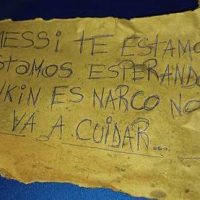 MESSI TE ESTAMO
ESTAMOS ESPERANDO
NKIN ES NARCO NO
VA A CUIDAR...